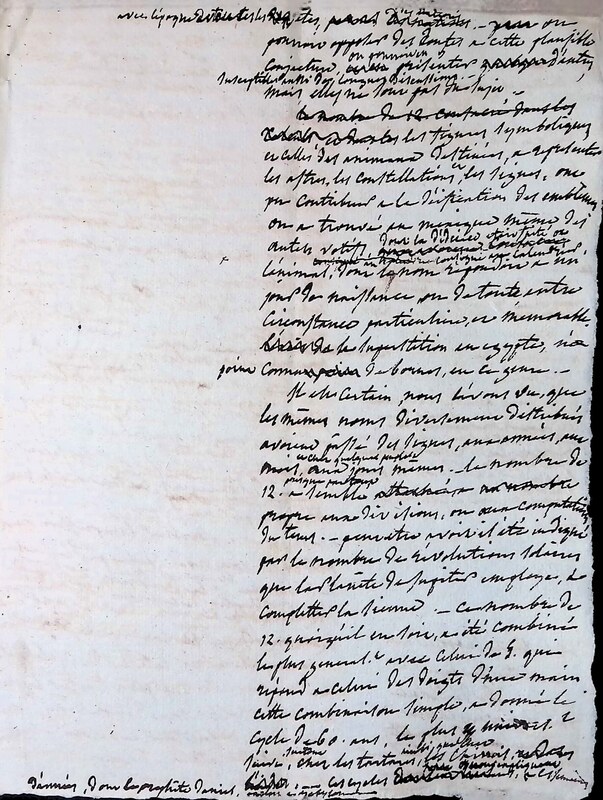 avec l'époque de toutes les
pourroit opposer des doutes a cette plausible
conjecture, on pourroit présenter d'autres
susceptibles aussi de longues discussions
mais elles ne sont pas du sujet. -
le nombre de 12 consacré dans les
les figures symboliques
et celles des animaux destinées, a representer
les astres, les constellations, les signes, ont
pu contribuer a la déification des emblemes
on a trouvé au mexique même des
autels votifs, dont la dédicace
l'animal, dont le nom répondoit a un
jour de naissance ou de toute autre
circonstance particuliere, et memorable.
de la superstition en egypte, n'a
point connu de bornes, en ce genre. -
Il est certain, nous l'avons vu, que
les mêmes noms diversement distribués
avoient passé des signes, aux années, aux
mois, aux jours mêmes. - le nombre de
12. a semblé presque partout
propre aux divisions, ou aux computations
du tems. - peut etre avoit il été indiqué
par le nombre de révolutions solaires
que la planete de Jupiter employe, a
completter la sienne - ce nombre de
12. quoiqu'il en soit, a été combiné
le plus general.t avec celui de 5. qui
répond a celui des doigts d'une main
cette combinaison simple, a donné le
cycle de 60. ans, le plus
chez les tartares,
d'années, dont le prophete daniel, ces cycles